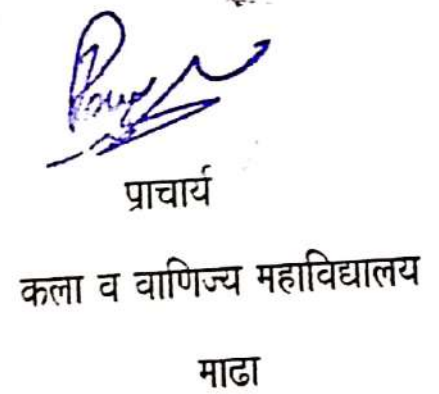 प्राचार्य
कला व वाणिज्य महाविद्यालय
माढा